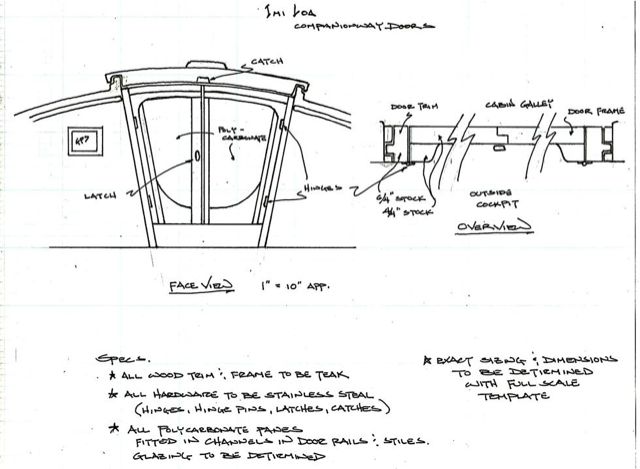 IMI LOA
COMPANIONWAY DOORS
CATCH
POLY-
CARBONATE
GP7
LATCH
HINGES
FACE VIEW 1" = 10" APP.
DOOR TRIM
CABIN GALLEY
DOOR FRAME
6/4" STOCK
4/4" STOCK
OUTSIDE
COCKPIT
OVERVIEW
SPECS.
* ALL WOOD TRIM & FRAME TO BE TEAK
* ALL HARDWARE TO BE STAINLESS STEAL
(HINGES, HINGE PINS, LATCHES, CATCHES)
* ALL POLYCARBONATE PANES
FITTED IN CHANNELS IN DOOR RAILS & STILES.
GLAZING TO BE DETIRMINED
* EXACT SIZING & DIMENSIONS
TO BE DETIRMINED
WITH FULL SCALE
TEMPLATE